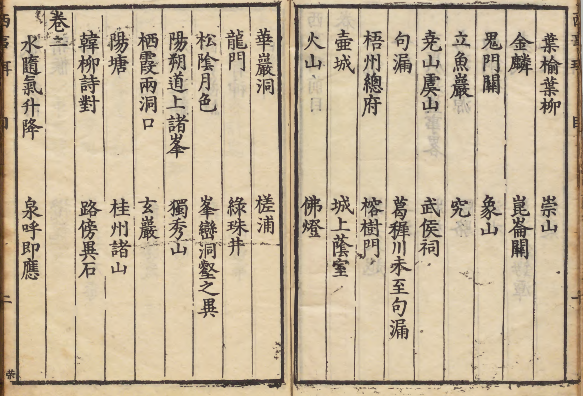 葉榆葉柳　崇山
金麟　崑崙關
鬼門關　象山
立魚巖　究
堯山虞山　武侯祠
句漏　葛穉川未至句漏
梧州總府　榕樹門
壺城　城上蔭室
火山　佛燈
華巖洞　槎浦
龍門　綠珠井
松陰月色　峯巒洞壑之異
陽朔道上諸峯　獨秀山
栖霞兩洞口　玄巖
陽塘　桂州諸山
韓柳詩對　路傍異石
卷二
水隨氣升降　泉呼即應
西事珥　目　二